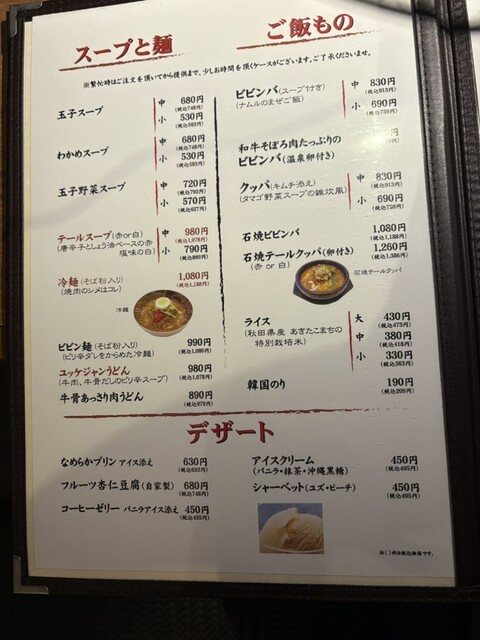 スープと麺
※繁忙時はご注文を頂いてから提供まで、少しお時間を頂くケースがございます。ご了承くださいませ。
玉子スープ
中 680円
(税込748円)
小 530円
(税込583円)
わかめスープ
中 680円
(税込748円)
小 530円
(税込583円)
玉子野菜スープ
中 720円
(税込792円)
小 570円
(税込627円)
テールスープ(赤or白)
(唐辛子としょう油ベースの赤
塩味の白)
中 980円
(税込1,078円)
小 790円
(税込869円)
冷麺(そば粉入り) 1,080円
(焼肉のシメはコレ) (税込1,188円)
冷麺
ビビン麺(そば粉入り) 990円
(ピリ辛ダレをからめた冷麺) (税込1,089円)
ユッケジャンうどん 980円
(牛肉、牛骨だしのピリ辛スープ) (税込1,078円)
牛骨あっさり肉うどん 890円
(税込979円)
ご飯もの
ビビンバ(スープ付き)
(ナムルのまぜご飯)
中 830円
(税込913円)
小 690円
(税込759円)
和牛そぼろ肉たっぷりの
ビビンバ(温泉卵付き)
クッパ(キムチ添え)
(タマゴ野菜スープの雑炊風)
中 830円
(税込913円)
小 690円
(税込759円)
石焼ビビンバ 1,080円
(税込1,188円)
石焼テールクッパ(卵付き) 1,260円
(赤 or 白) (税込1,386円)
石焼テールクッパ
ライス
(秋田県産 あきたこまちの
特別栽培米)
大 430円
(税込473円)
中 380円
(税込418円)
小 330円
(税込363円)
韓国のり 190円
(税込209円)
デザート
なめらかプリン アイス添え 630円
(税込693円)
フルーツ杏仁豆腐(自家製) 680円
(税込748円)
コーヒーゼリー バニラアイス添え 450円
(税込495円)
アイスクリーム 450円
(バニラ・抹茶・沖縄黒糖) (税込495円)
シャーベット(ユズ・ピーチ) 450円
(税込495円)
※( )内は税込価格です。